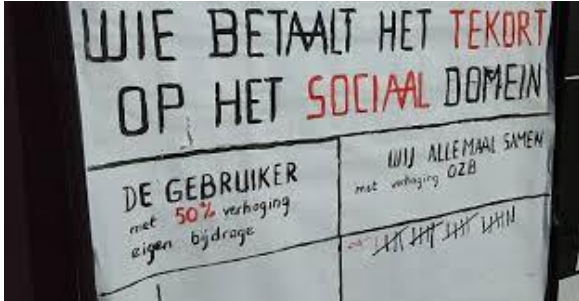 WIE BETAALT HET TEKORT
OP HET SOCIAAL DOMEIN
DE GEBRUIKER
met 50% verhoging
eigen bijdrage
WIJ ALLEMAAL SAMEN
met verhoging OZB